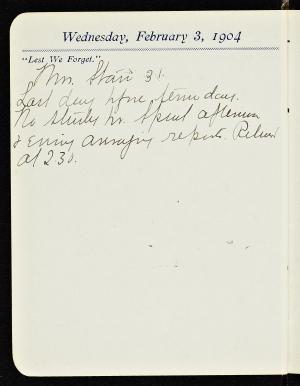 Wednesday, February 3, 1904
"Lest We Forget."
Mrs. Starr 31.
Last day before term days.
No study hr. Spent afternoon
& Evening arranging reports. Retired
at 2 30.